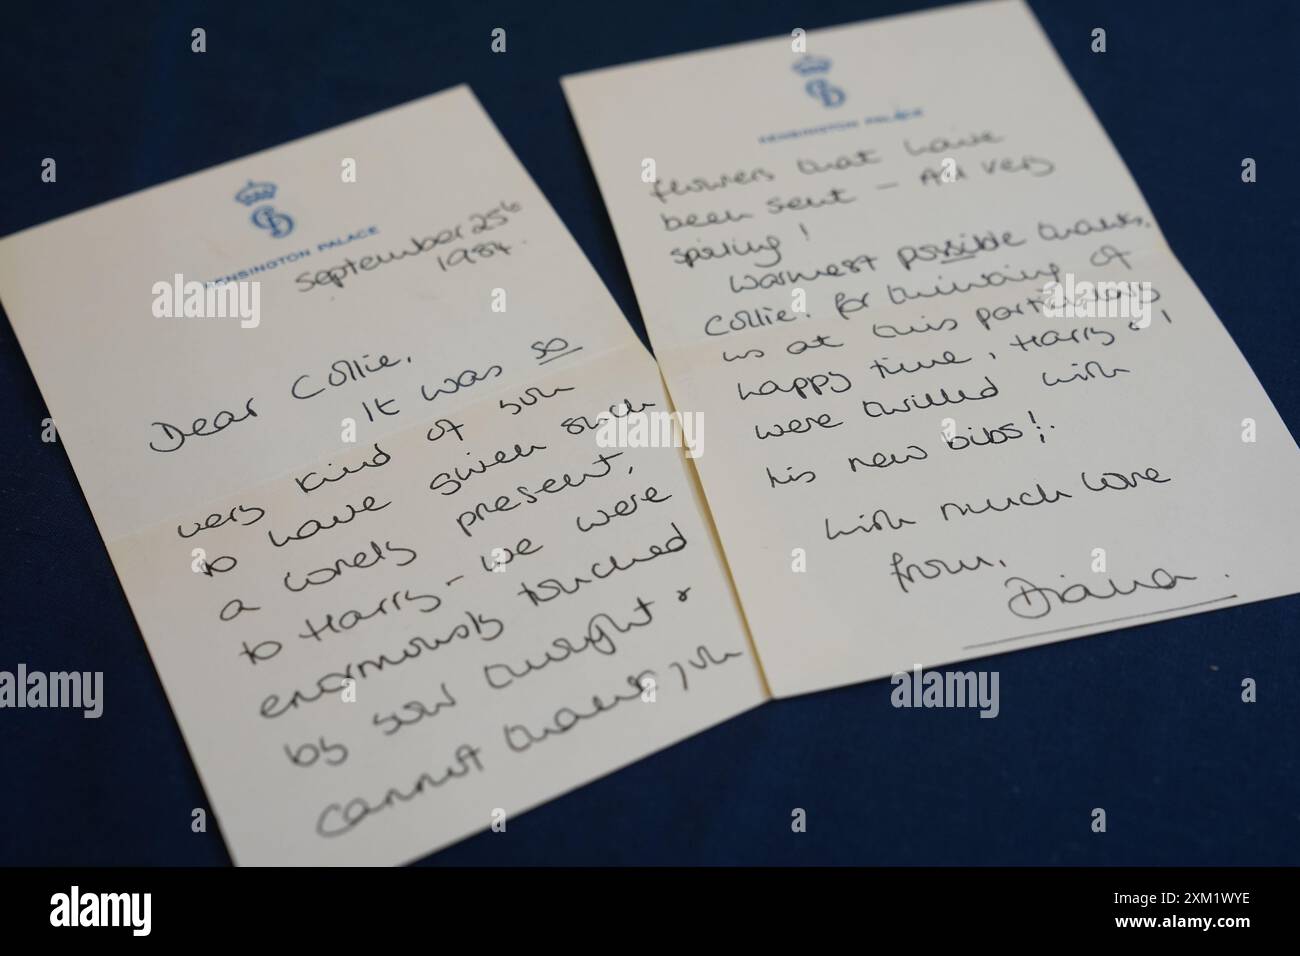 KENSINGTON PALACE
September 25th
1984.
Dear Collie,
It was so
very kind of you
to have given such
a lovely present,
to Harry - we were
enormously touched
by your thought &
cannot thank you
KENSINGTON PALACE
flowers that have
been sent - All very
spoiling!
Warmest possible thanks,
Collie, for thinking of
us at this particularly
happy time, Harry & I
were thrilled with
his new bibs!.
With much love
from,
Diana.
alamy
Image ID: 2XM1WYE
www.alamy.com